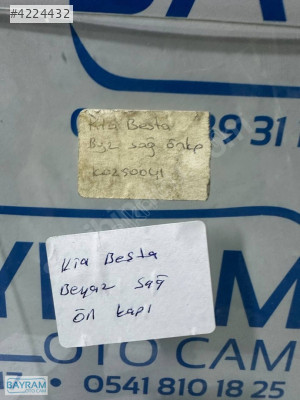 #4224432
39 31
Kia Besta
Byz sağ önkp
K0250041
Kia Besta
Beyaz sağ
ön kapı
BAYRAM
OTO CAM
0541 810 18 25
BAYRAM
OTO CAM